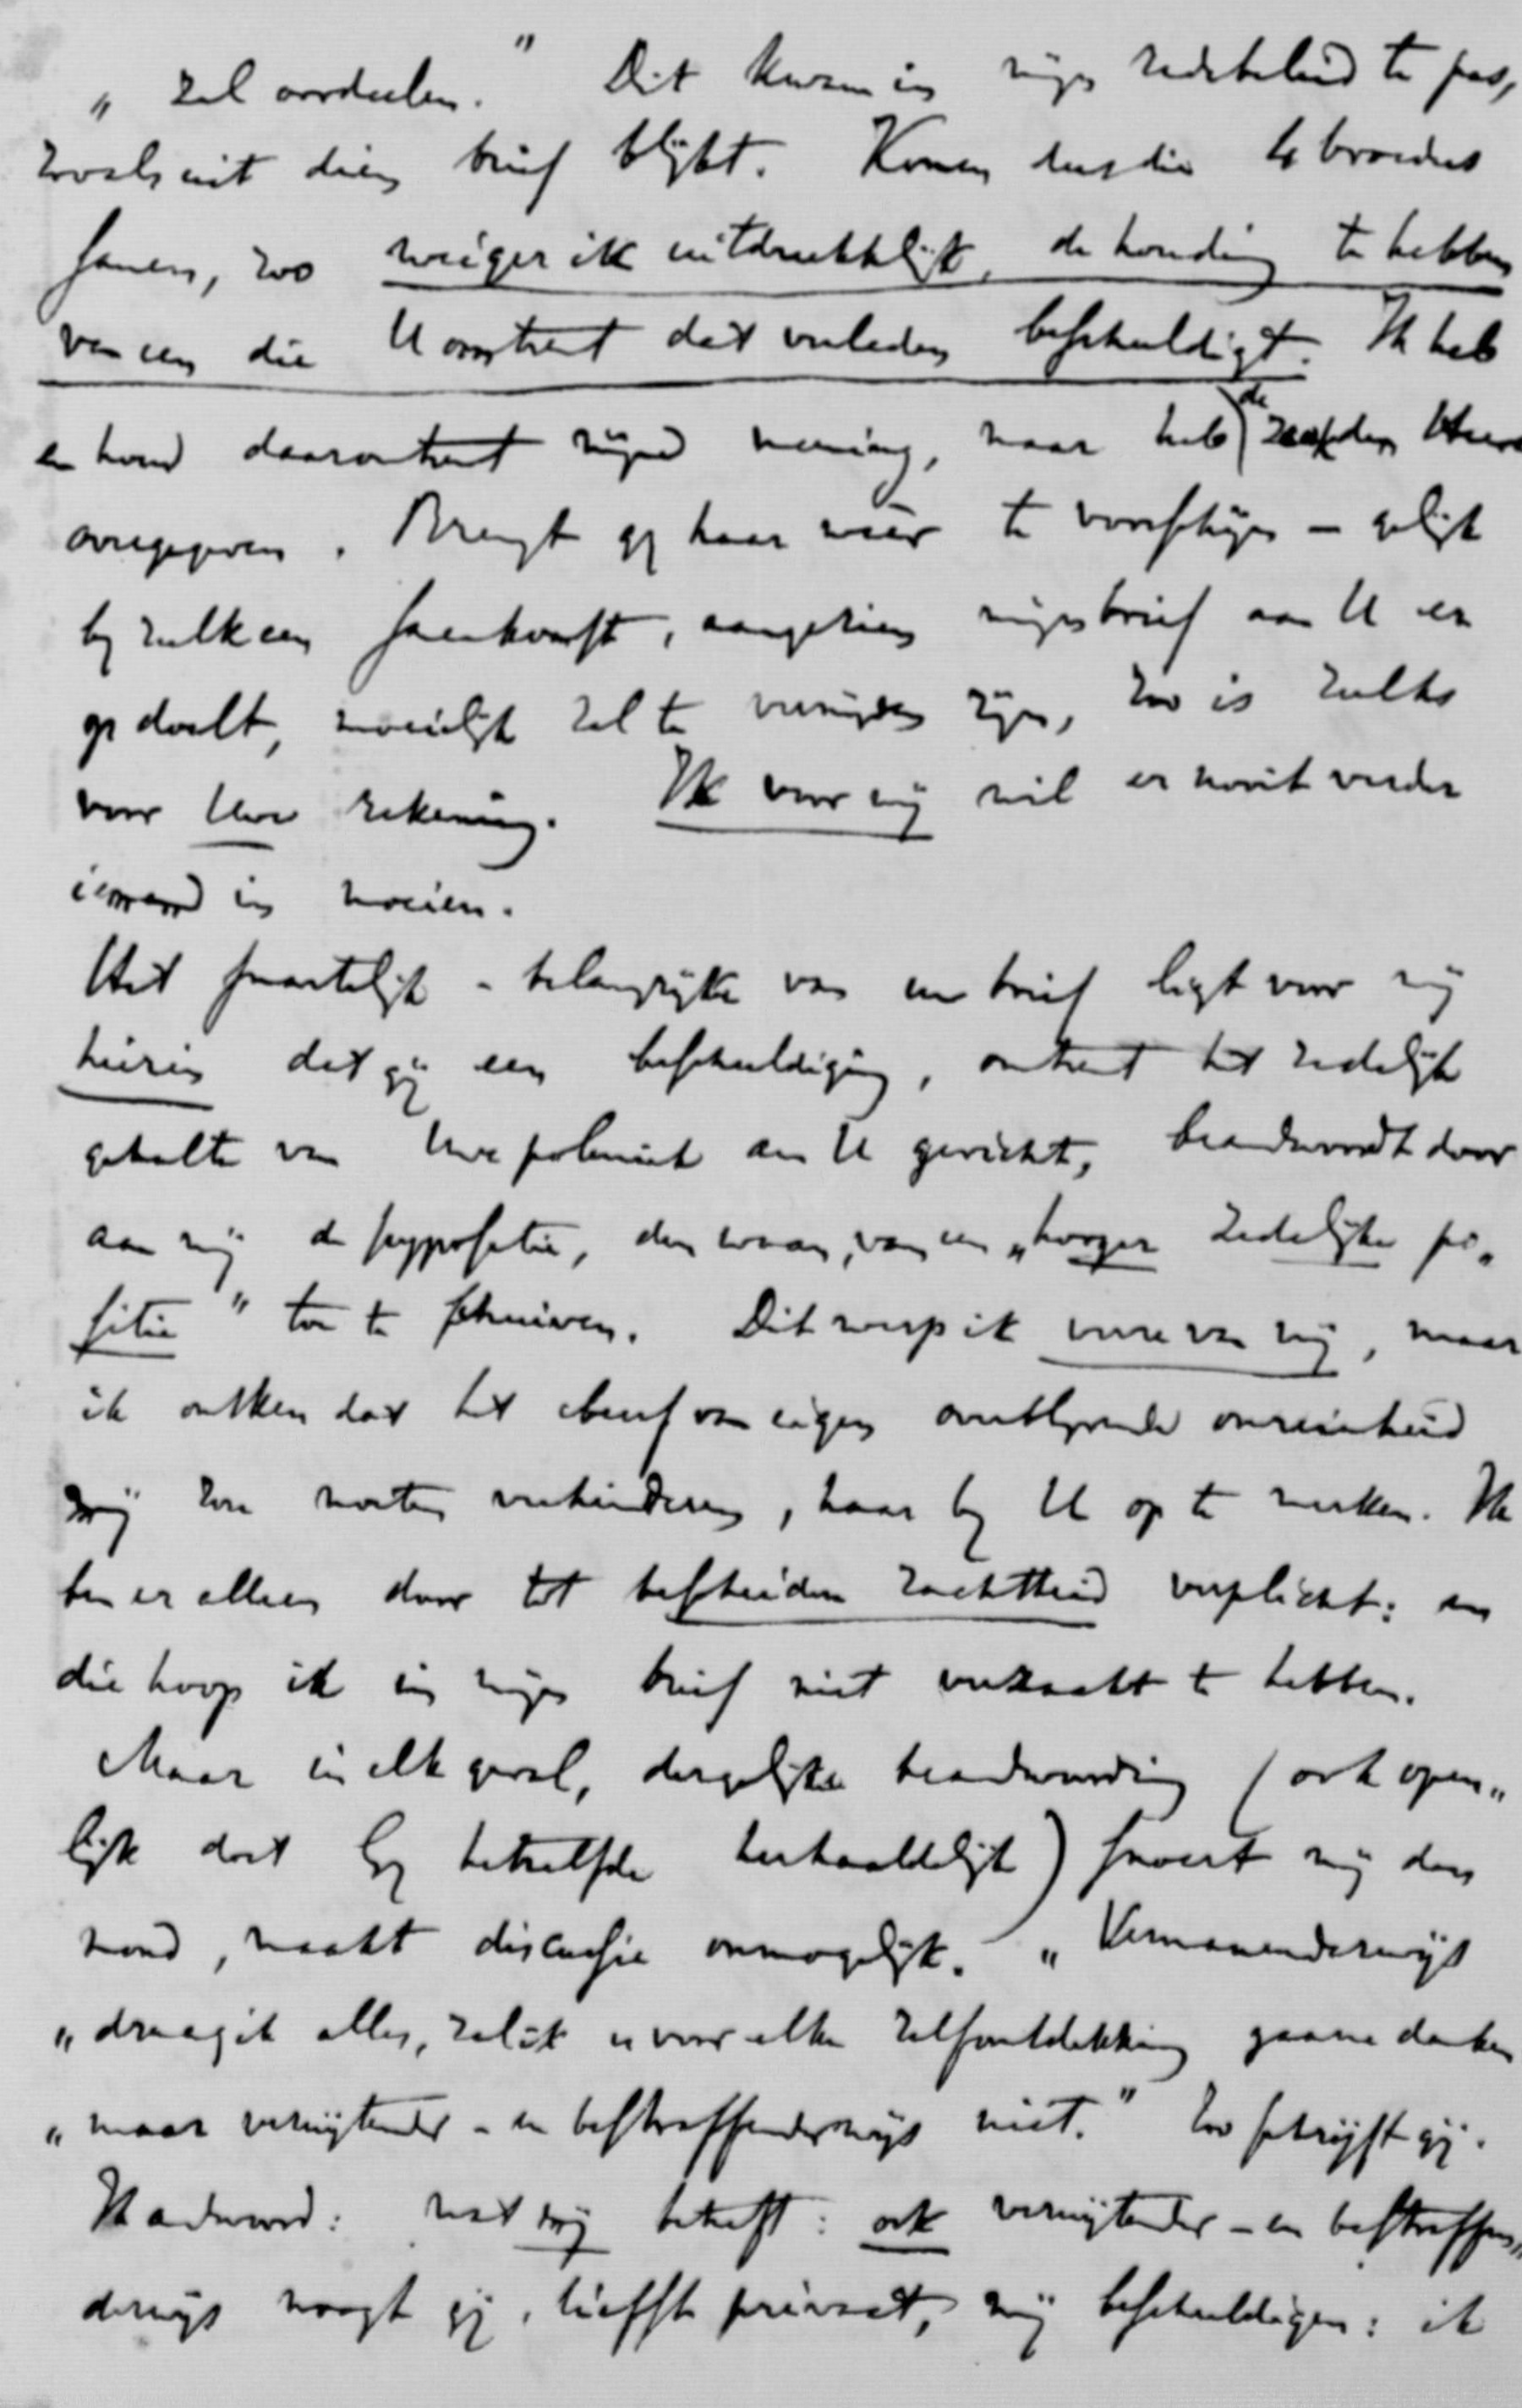 „ zal oordeelen.” Dit kwam in mijn redebeleid te pas,
zooals uit dien brief blijkt. Komen dus die 4 broeders
samen, zoo weiger ik uitdrukkelijk, de houding te hebben
van een die U omtrent dat verleden beschuldigt. Ik heb
en houd daaromtrent mijne meening, maar heb de zaak den Heere
overgegeven. Brengt gij haar weer te voorschijn – gelijk
bij zulk een saamkomst, aangezien mijn brief aan U er
op doelt, moeielijk zal te vermijden zijn, zoo is zulks
voor Uwe rekening. Ik voor mij wil er nooit verder
iemand in moeien.
Het smartelijk-belangrijke van uw brief ligt voor mij
hierin dat gij een beschuldiging, omtrent het zedelijk
gehalte van Uwe polemiek aan U gericht, beantwoordt door
aan mij de suppositie, den waan, van een „hooger zedelijke po„
sitie” toe te schrijven. Dit werp ik verre van mij, maar
ik ontken dat het besef van eigen aanklevende onreinheid
mij zou moeten verhinderen, haar bij U op te merken. Ik
ben er alleen door tot bescheiden zachtheid verplicht: en
die hoop ik in mijn brief niet verzaakt te hebben.
Maar in elk geval, dergelijke beantwoording (ook open„
lijk doet gij hetzelfde herhaaldelijk) snoert mij den
mond, maakt discussie onmogelijk. „Vermanenderwijs
„draag ik alles, zal ik u voor elke zelfontdekking gaarne danken
„maar vernijtender- en bestraffenderwijs niet.” Zoo schrijft gij.
Ik antwoord: wat mij betreft: ook vernijtender- en bestraffen„
derwijs moogt gij, liefst privaat, mij beschuldigen: ik